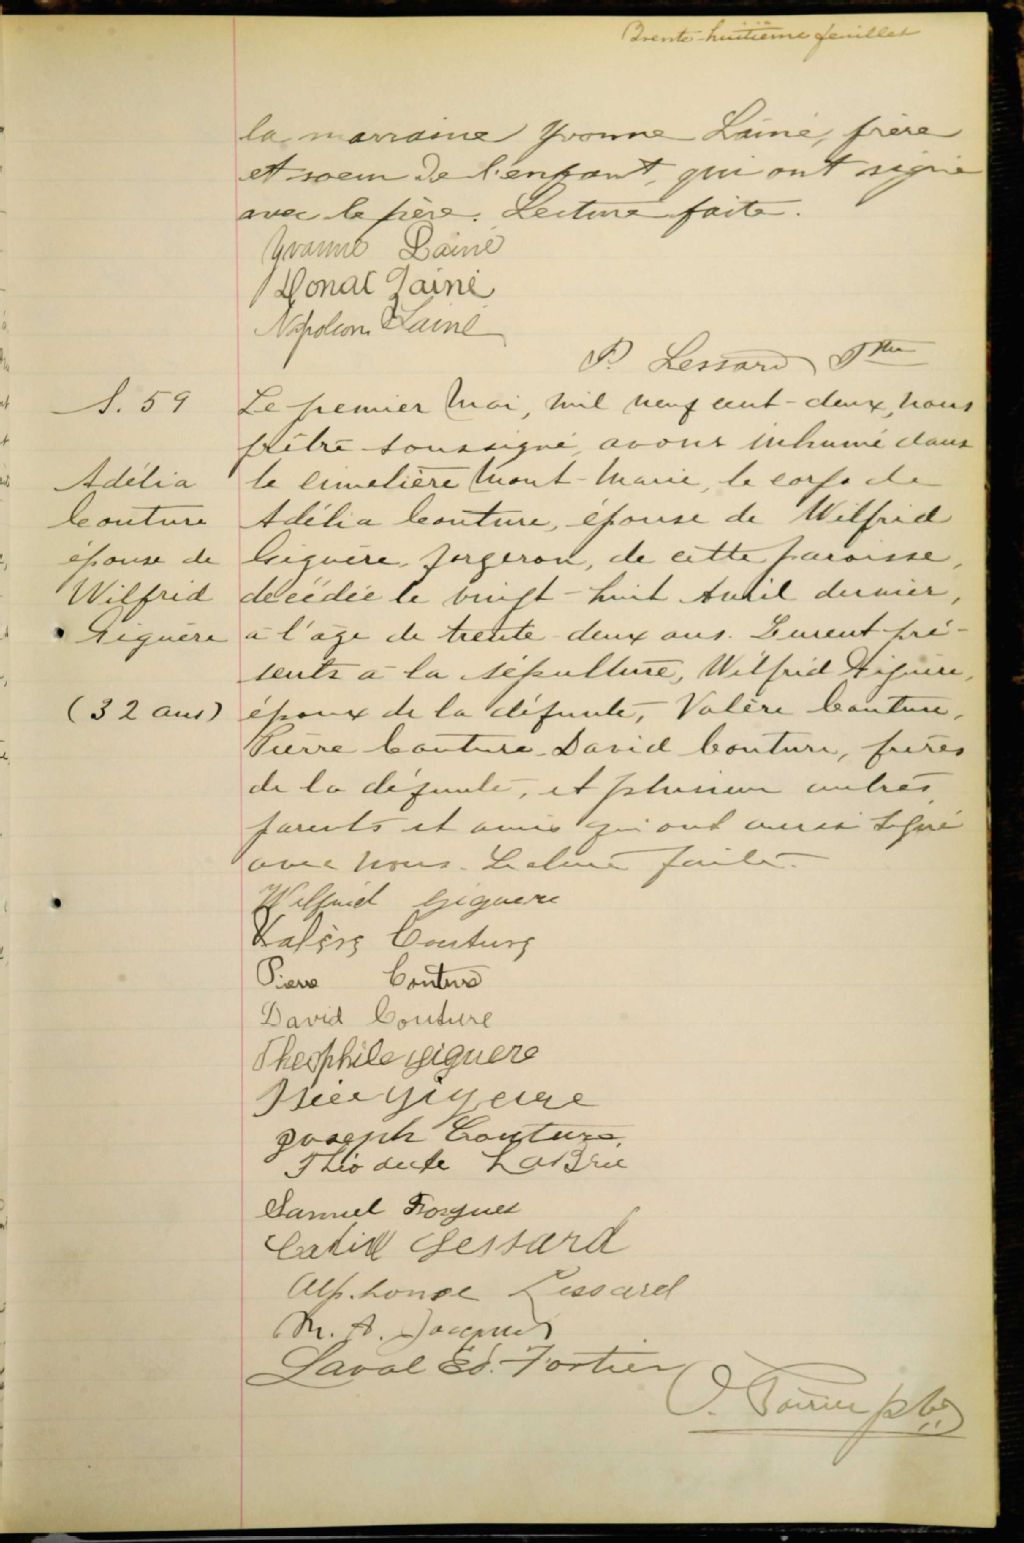 Trente-huitième feuillet
la marraine Yvonne Lainé, frère
et soeur de l'enfant, qui ont signé
avec le père. Lecture faite.
Yvonne Lainé
Donat Lainé
Napoleon Lainé
P. Lessard Ptre
S. 59
Adélia
Couture
épouse de
Wilfrid
Giguère
(32 ans)
Le premier Mai, mil neuf cent-deux, nous
prêtre soussigné, avons inhumé dans
le cimetière Mont-Marie, le corps de
Adélia Couture, épouse de Wilfrid
Giguère, forgeron, de cette paroisse,
décédée le vingt-huit Avril dernier,
à l'âge de trente-deux ans. Furent pré-
sents à la sépulture, Wilfrid Giguère,
époux de la défunte, Valère Couture,
Pierre Couture, David Couture, frères
de la défunte, et plusieurs autres
parents et amis qui ont aussi signé
avec nous. Lecture faite.
Wilfrid Giguere
Valère Couture
Pierre Couture
David Couture
Theophile Giguere
Giguere
Joseph Couture
LaBrie
Samuel
Lessard
Alphonse Lessard
M. A. Jacques
Laval Ed. Fortier
O. Poirier ptre